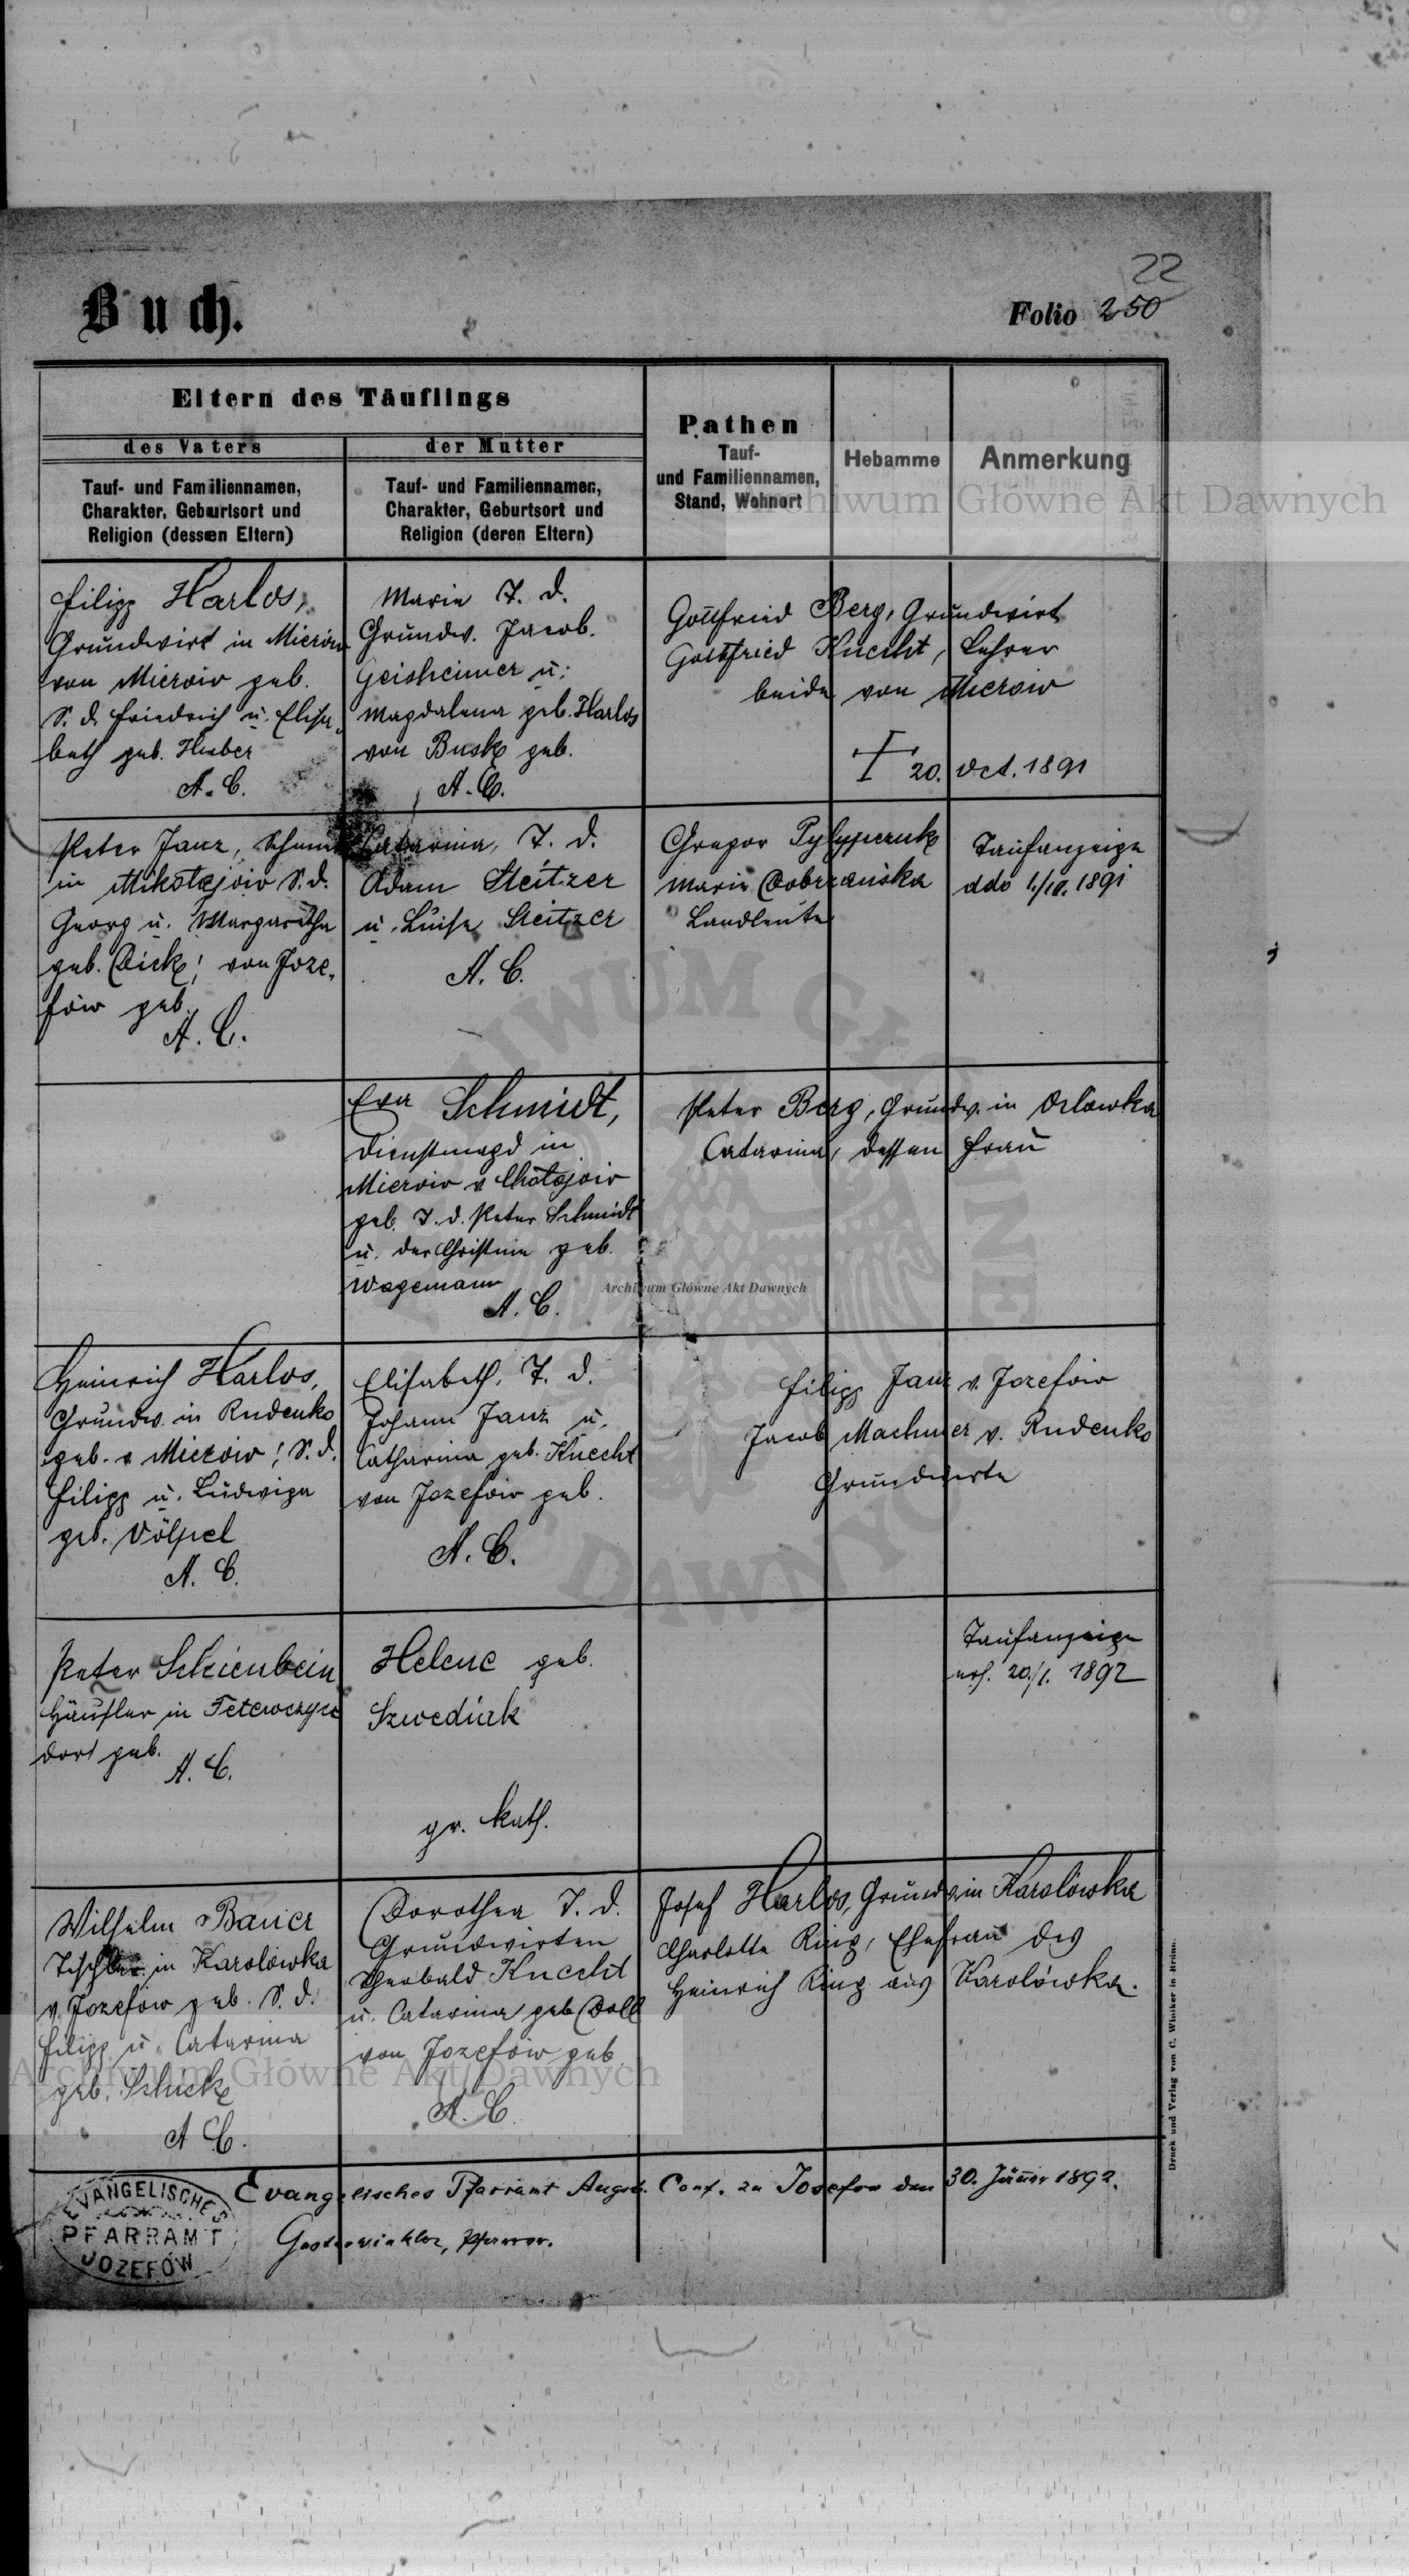 22
Buch.
Folio 250
Eltern des Täuflings
des Vaters
der Mutter
Tauf- und Familiennamen,
Charakter, Geburtsort und
Religion (dessen Eltern)
Tauf- und Familiennamen,
Charakter, Geburtsort und
Religion (deren Eltern)
Pathen
Tauf-
und Familiennamen,
Stand, Wohnort
Hebamme
Anmerkung
Archiwum Główne Akt Dawnych
Filipp Harlos,
Grundwirt in Mierów
von Mierów geb.
S. d. Friedrich u. Elisa-
beth geb. Huber
A. C.
Marie T. d.
Grundw. Jacob
Geisheimer u.
Magdalena geb. Harlos
von Busk geb.
A. C.
Gottfried Berg, Grundwirt
Gottfried Knecht, Lehrer
beide von Mierów
† 20. Oct. 1891
Peter Janz,
in Mikołajów S. d.
Georg u. Margaretha
geb. Dick; von Joze-
fów geb.
A. C.
Catarina, T. d.
Adam Steitzer
u. Luise Steitzer
A. C.
Gregor Pylypczuk
Marie Dobrzańska
Landleute
Taufanzeige
ddo 1./10. 1891
Eva Schmidt,
Dienstmagd in
Mierów v.
geb. T. d. Peter Schmidt
u. der Christine geb.
Wagemann
A. C.
Peter Berg, Grundw. in Orlowka
Catarina, dessen Frau
Archiwum Główne Akt Dawnych
Heinrich Harlos,
Grundw. in Rudenko
geb. v. Mierów; S. d.
Filipp u. Ludwiga
geb. Völpel
A. C.
Elisabeth, T. d.
Johann Janz u.
Catharina geb. Knecht
von Jozefów geb.
A. C.
Filipp Janz v. Jozefów
Jacob Machmer v. Rudenko
Grundwirte
Peter Scheienbein
Häusler in Tetewczyce
dort geb.
A. C.
Helene geb.
Szwediuk
gr. kath.
Taufanzeige
20./1. 1892
Wilhelm Bauer
Tischler in Karolówka
v. Jozefów geb. S. d.
Filipp u. Catarina
geb. Schick
A. C.
Dorothea T. d.
Grundwirten
Theobald Knecht
u. Catarina geb. Doll
von Jozefów geb.
A. C.
Josef Harlos, Grundw. in Karolówka
Charlotte Ring, Ehefrau des
Heinrich Ring aus Karolówka.
Archiwum Główne Akt Dawnych
Evangelisches Pfarramt Augsb. Conf. zu Josefow den 30. Jänner 1892.
Pfarrer.
EVANGELISCHES
PFARRAMT
JOZEFÓW
Druck und Verlag von C. Winiker in Brünn.
ARCHIWUM GŁÓWNE
AKT DAWNYCH